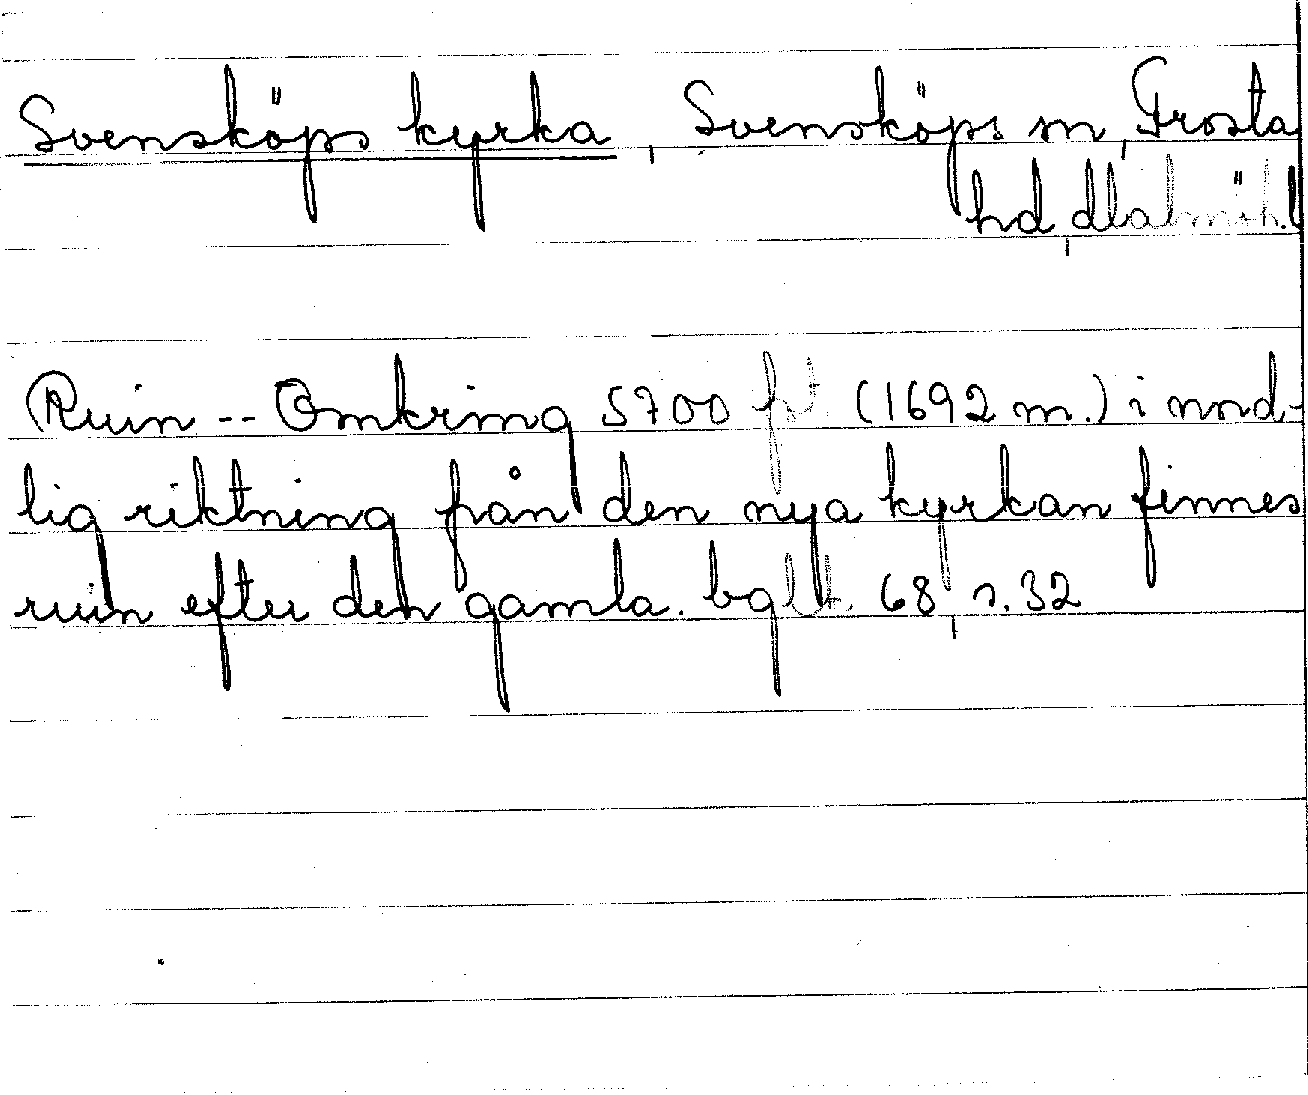 Svensköps kyrka, Svensköps sn, Frosta
hd, Malmöh. l
Ruin -- Omkring 5700 fot (1692 m.) i nord-
lig riktning från den nya kyrkan finnes
ruin efter den gamla. bglt. 68, s. 32